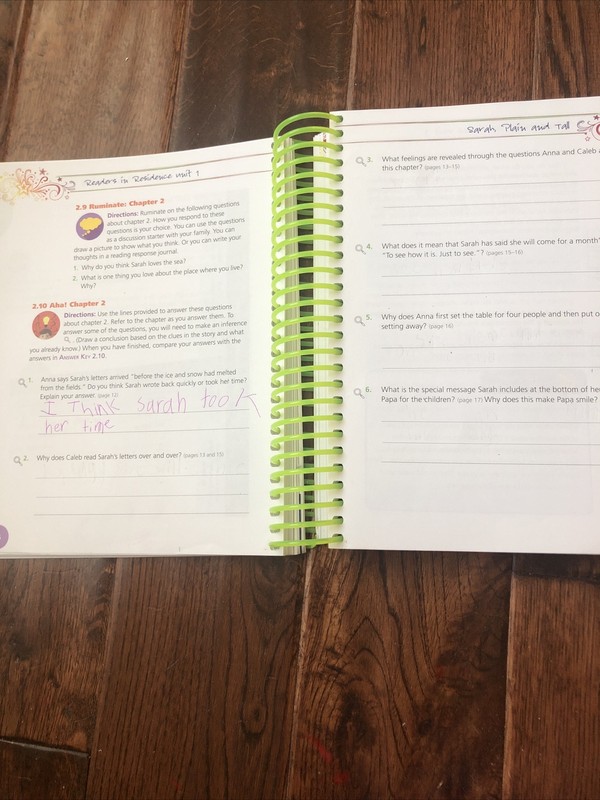 Readers in Residence Unit 1
2.9 Ruminate: Chapter 2
Directions: Ruminate on the following questions
about chapter 2. How you respond to these
questions is your choice. You can use the questions
as a discussion starter with your family. You can
draw a picture to show what you think. Or you can write your
thoughts in a reading response journal.
1. Why do you think Sarah loves the sea?
2. What is one thing you love about the place where you live?
Why?
2.10 Aha! Chapter 2
Directions: Use the lines provided to answer these questions
about chapter 2. Refer to the chapter as you answer them. To
answer some of the questions, you will need to make an inference
. (Draw a conclusion based on the clues in the story and what
you already know.) When you have finished, compare your answers with the
answers in Answer Key 2.10.
1. Anna says Sarah's letters arrived "before the ice and snow had melted
from the fields." Do you think Sarah wrote back quickly or took her time?
Explain your answer. (page 12)
I Think Sarah took
her time
2. Why does Caleb read Sarah's letters over and over? (pages 13 and 15)
Sarah Plain and Tall
3. What feelings are revealed through the questions Anna and Caleb
this chapter? (pages 13–15)
4. What does it mean that Sarah has said she will come for a month
"To see how it is. Just to see."? (pages 15–16)
5. Why does Anna first set the table for four people and then put
setting away? (page 16)
6. What is the special message Sarah includes at the bottom of
Papa for the children? (page 17) Why does this make Papa smile?